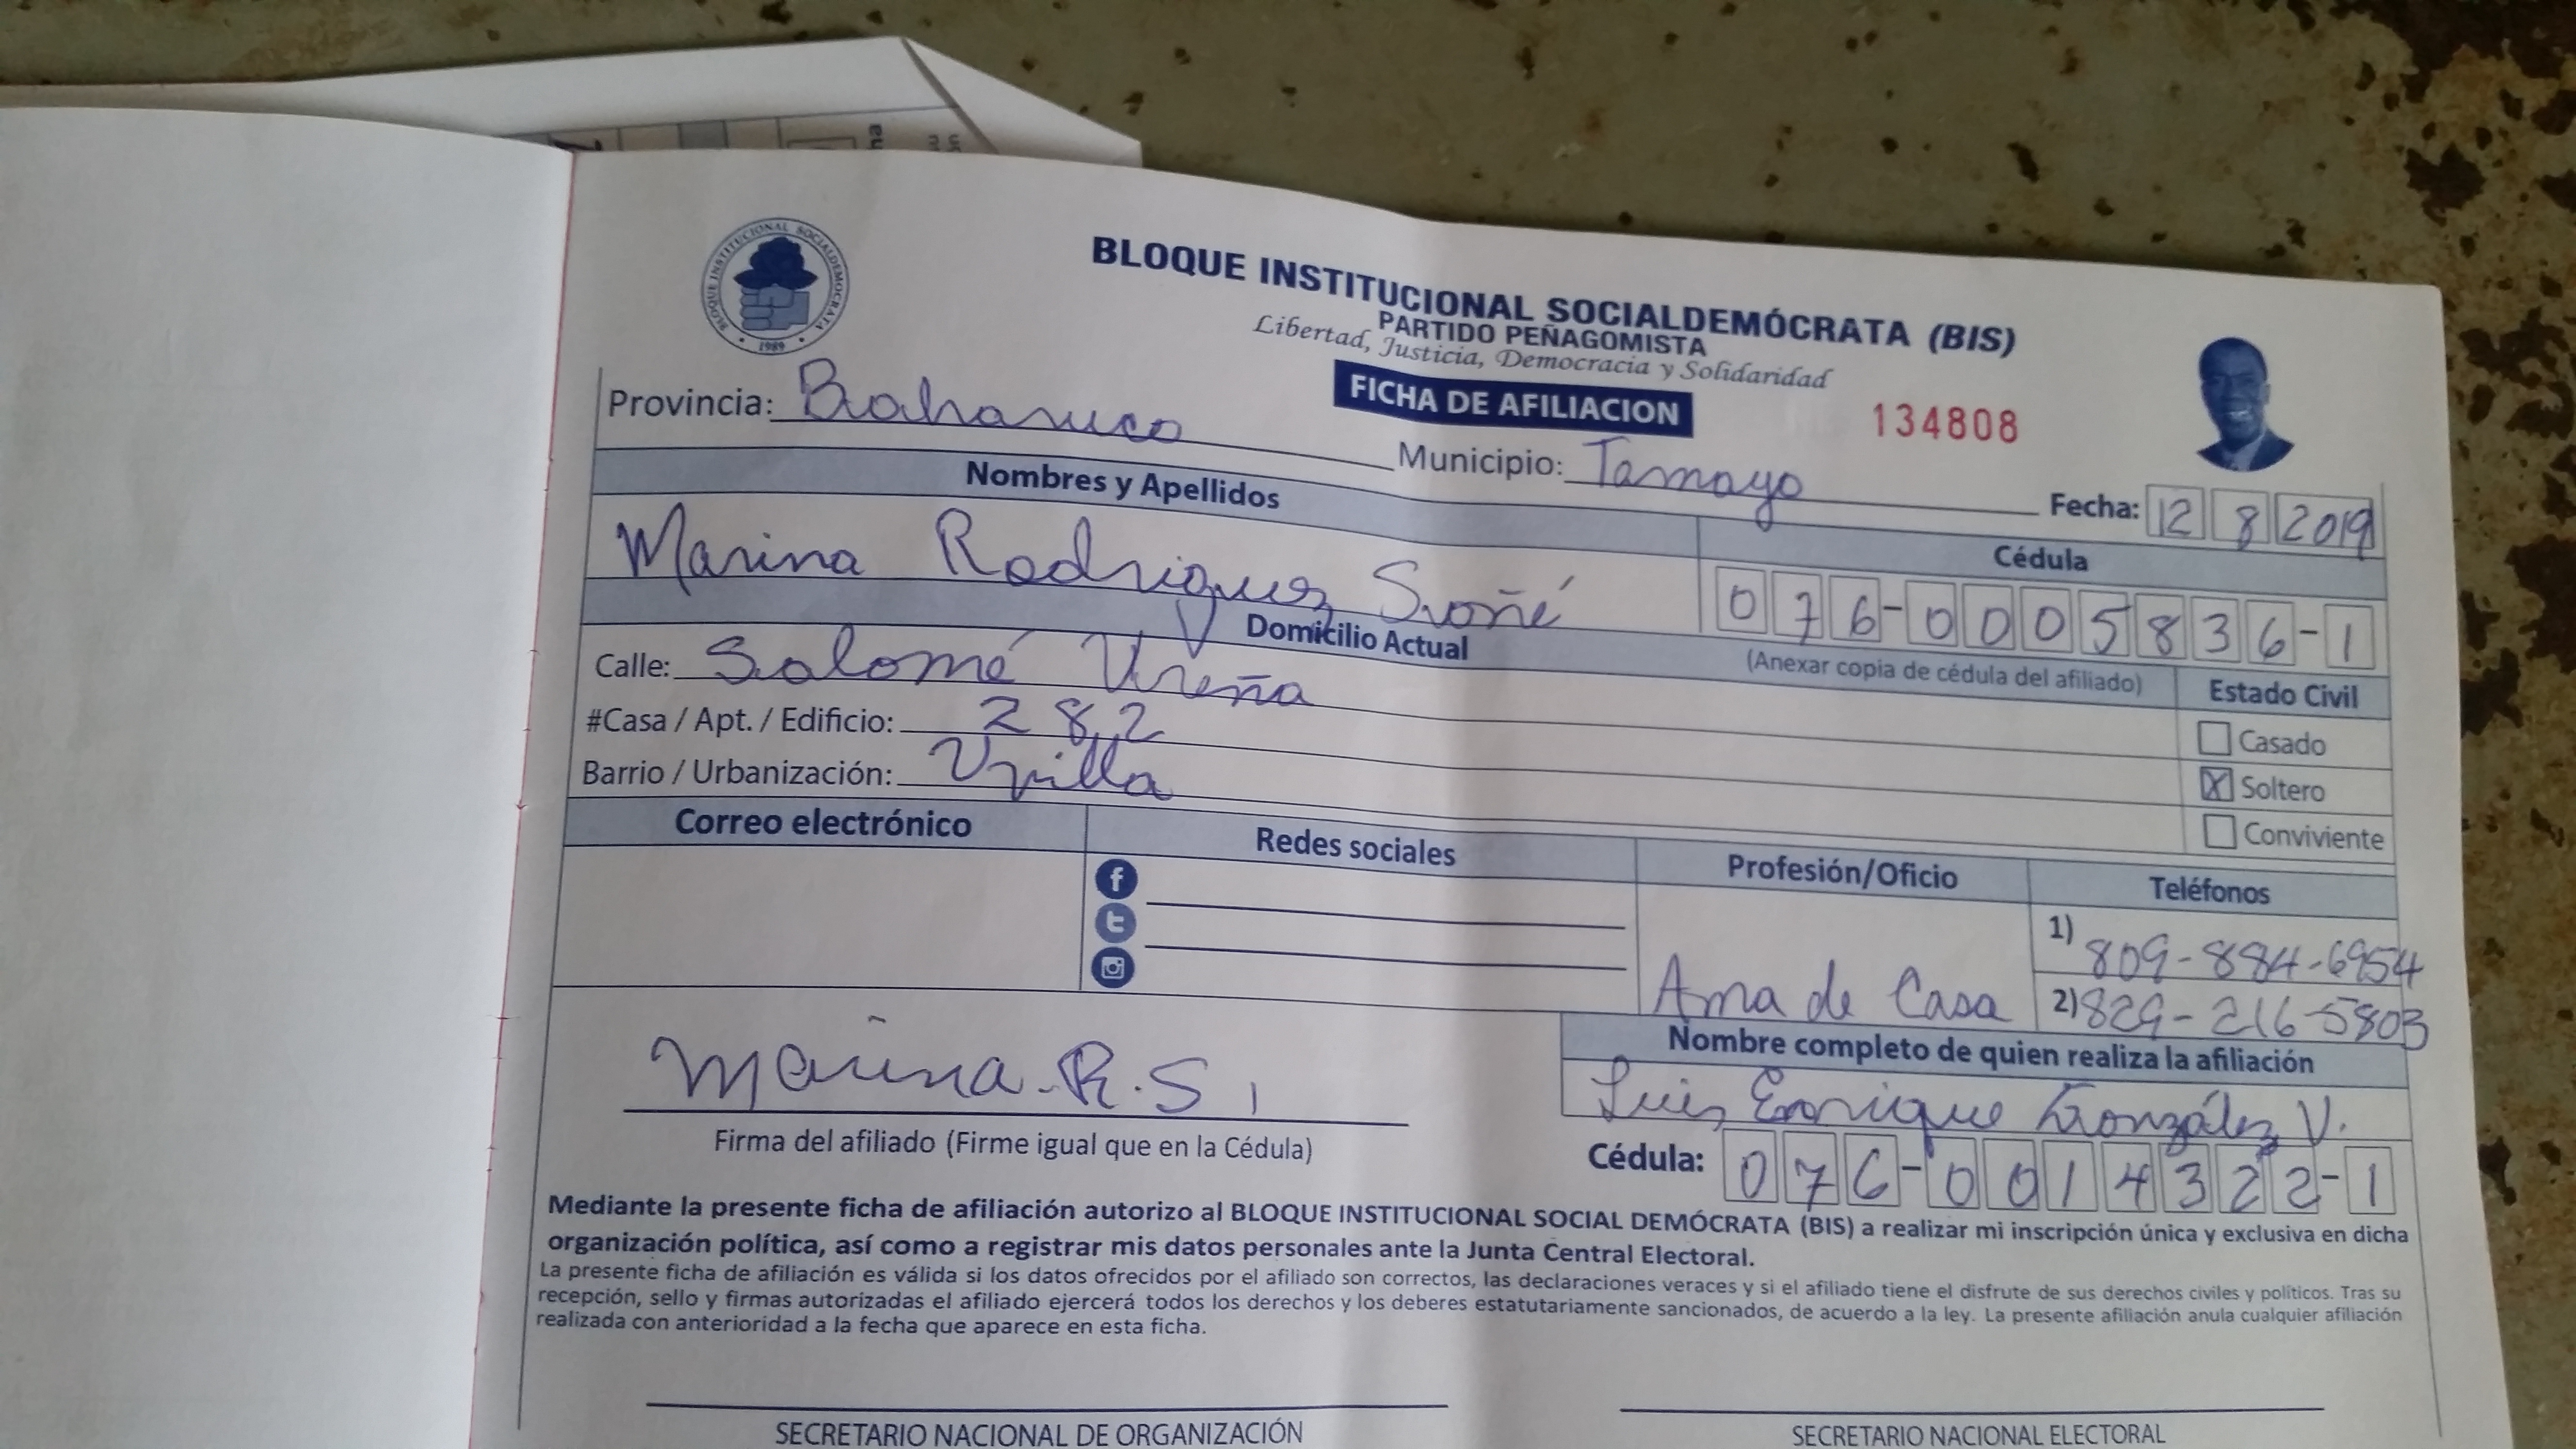 BLOQUE INSTITUCIONAL SOCIALDEMOCRATA
1989
BLOQUE INSTITUCIONAL SOCIALDEMÓCRATA (BIS)
PARTIDO PEÑAGOMISTA
Libertad, Justicia, Democracia y Solidaridad
FICHA DE AFILIACION
134808
Provincia: Bahoruco
Municipio: Tamayo
Fecha: 12 8 2019
Nombres y Apellidos
Cédula
Marina Rodriguez Suñé
076-0005836-1
Domicilio Actual
(Anexar copia de cédula del afiliado)
Estado Civil
Calle: Salomé Ureña
#Casa / Apt. / Edificio: 282
Barrio / Urbanización:
Casado
X Soltero
Conviviente
Correo electrónico
Redes sociales
Profesión/Oficio
Teléfonos
Ama de Casa
1) 809-884-6954
2) 829-216-5803
Marina.R.S
Firma del afiliado (Firme igual que en la Cédula)
Nombre completo de quien realiza la afiliación
Luis Enrique González V.
Cédula: 076-0014322-1
Mediante la presente ficha de afiliación autorizo al BLOQUE INSTITUCIONAL SOCIAL DEMÓCRATA (BIS) a realizar mi inscripción única y exclusiva en dicha
organización política, así como a registrar mis datos personales ante la Junta Central Electoral.
La presente ficha de afiliación es válida si los datos ofrecidos por el afiliado son correctos, las declaraciones veraces y si el afiliado tiene el disfrute de sus derechos civiles y políticos. Tras su
recepción, sello y firmas autorizadas el afiliado ejercerá todos los derechos y los deberes estatutariamente sancionados, de acuerdo a la ley. La presente afiliación anula cualquier afiliación
realizada con anterioridad a la fecha que aparece en esta ficha.
SECRETARIO NACIONAL DE ORGANIZACIÓN
SECRETARIO NACIONAL ELECTORAL